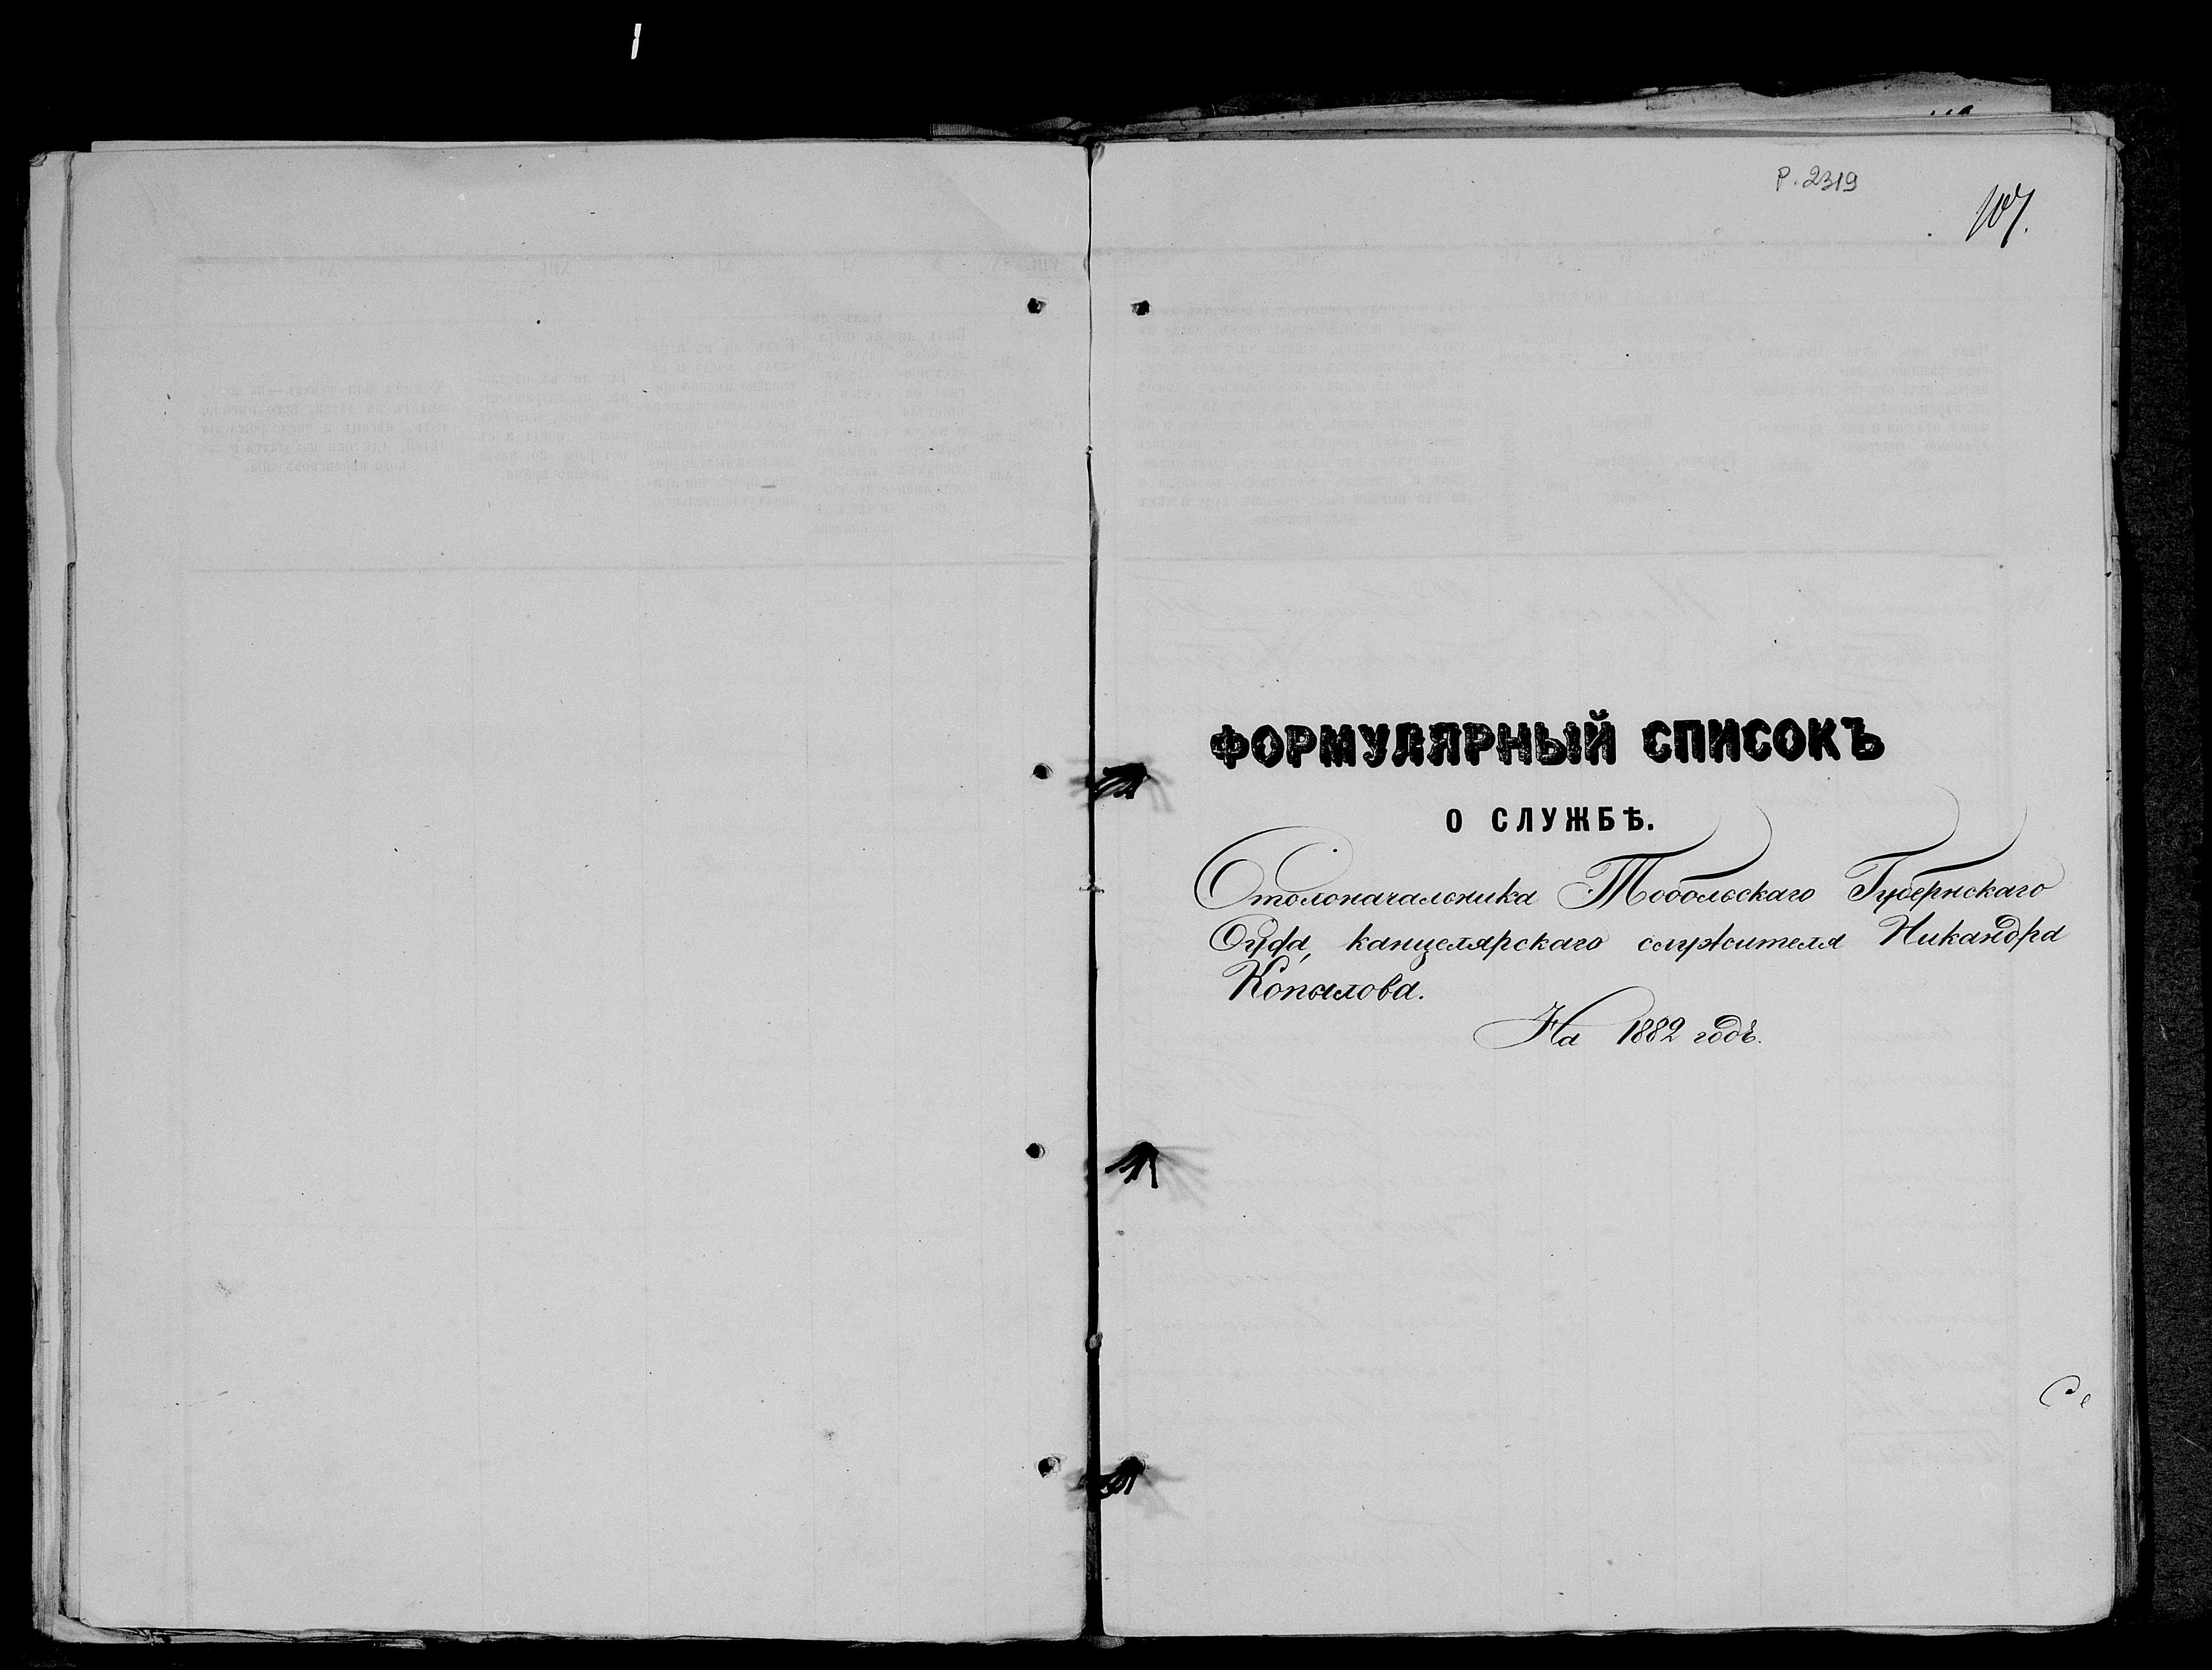 Р. 2319
107.
ФОРМУЛЯРНЫЙ СПИСОКЪ
О СЛУЖБѢ.
Столоначальника Тобольскаго Губернскаго
Суда, канцелярскаго служителя Никандра
Копылова.
На 1882 годъ.